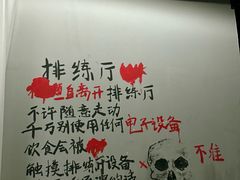 排练厅
擅自离开排练厅
不许随意走动
千万别使用任何电子设备
饮食会被
不准
触摸排练厅设备